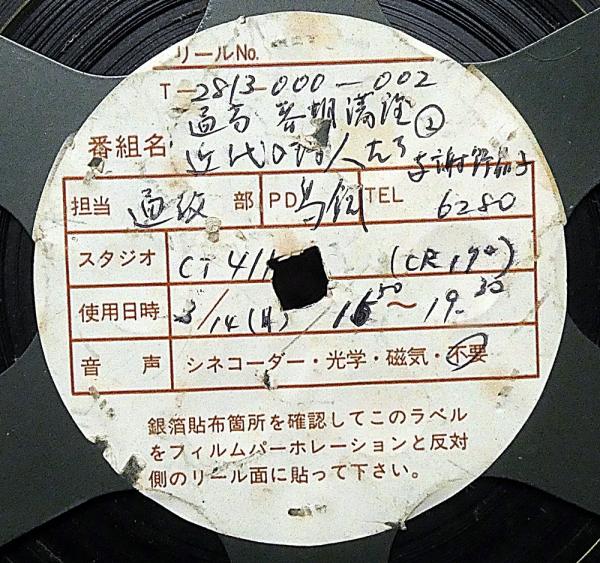 リールNo.
T-2813-000-002
通高 春期講座 ②
番組名 近代の詩人たち
与謝野晶子
担当 通教 部 PD TEL 6280
スタジオ CT 411 (CR 19)
使用日時 3/14(月) 16 50 ~ 19. 30
音 声 シネコーダー・光学・磁気・不要
銀箔貼布箇所を確認してこのラベル
をフィルムパーホレーションと反対
側のリール面に貼って下さい。